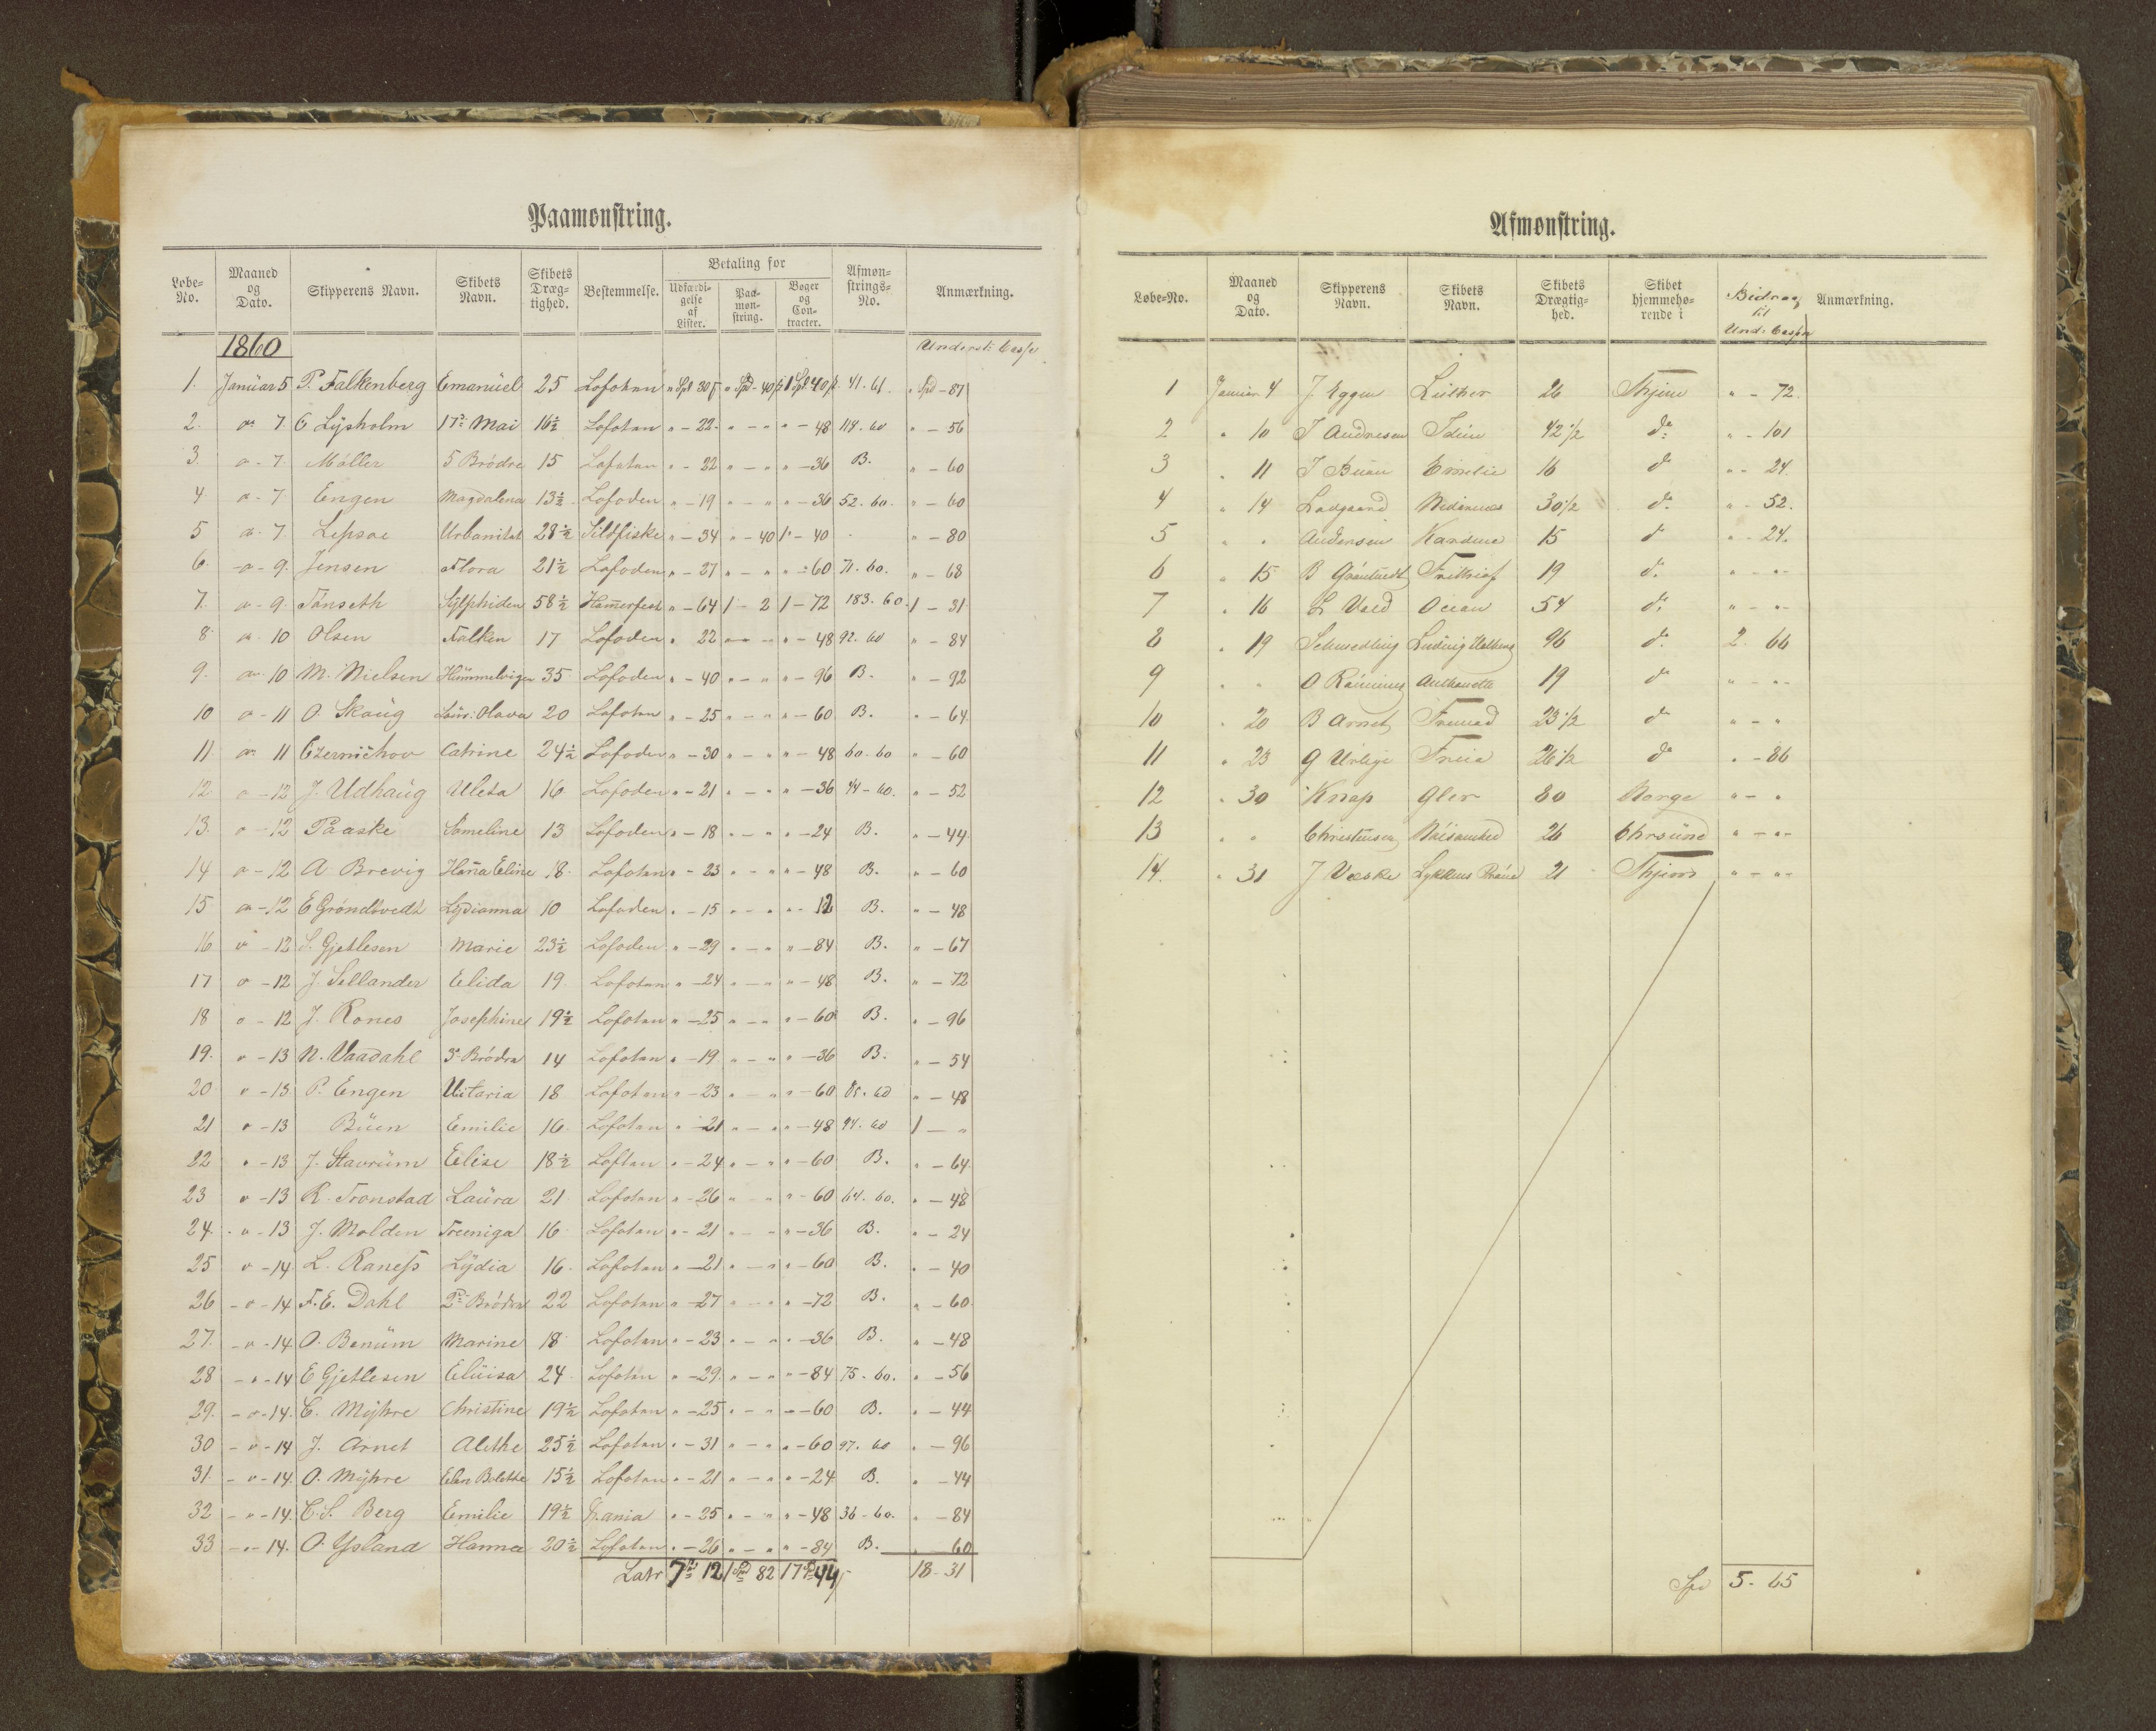 Paamønstring.
Løbe-No. Maaned og Dato. Skipperens Navn. Skibets Navn. Skibets Dræg-tighed. Bestemmelse. Betaling for Udfærdi-gelse af Lister. Paa-møn-string. Bøger og Con-tracter. Afmøn-strings-No. Anmærkning.
1860 Underst: Casse
1. Januar 5 P. Falkenberg Emanuel 25 Lofoten " Spd 30 " Spd - 40 1 Spd 40 41. 61. " Spd - 87
2. " 7. C Lysholm 17de Mai 16½ Lofoten " - 22 " - " " - 48 118. 60 " - 56
3. " - 7. Møller 5 Brødre 15 Lofoten " - 22 " - " " - 36 B. " - 60
4 " - 7 Engen Magdalena 13½ Lofoden " - 19 " - " " - 36 52. 60. " - 60
5 " - 7. Lepsøe Urbanitet 28½ Sildfiske " - 34 " - 40 1 " - 40 - " - 80
6. " - 9. Jensen Flora 21½ Lofoden " - 27 " - " " - 60 71. 60. " - 68
7. " - 9. Tanseth Sylphiden 58½ Hamerfest " - 64 1 - 2 1 - 72 183. 60. 1 - 31
8 " 10 Olsen Falken 17 Lofoden " 22 " - " " - 48 92. 60 " - 84
9. " 10 M. Nielsen Himmelvigen 35 Lofoden " - 40 " - " " - 96 B. " - 92
10 " - 11 O. Skaug Laur: Olava 20 Lofoten " - 25 " - " " - 60 B. " - 64
11. " 11 Czernichov Catrine 24½ Lofoden " - 30 " - " " - 48 60. 60 " - 60
12 " - 12 J. Udhaug Uleta 16 Lofoden " - 21 " - " " - 36 44 - 60. " - 52
13. " - 12 Paaske Sameline 13 Lofoden " - 18 " - " " - 24 B. " - 44
14 " - 12 A Brevig Hana Eline 18 Lofoten " - 23 " - " " - 48 B. " - 60
15 " - 12 E Grøndtvedt Lydianna 10 Lofoden " - 15 " - " " - 12 B. " - 48
16 " - 12 S. Gjetlesen Marie 23½ Lofoden " - 29 " - " " - 84 B. " - 67
17 " - 12 J. Sellander Elida 19 Lofoten " - 24 " - " " - 48 B. " - 72
18 " - 12 J. Rones Josephine 19½ Lofoten " - 25 " - " " - 60 B. " - 96
19. " - 13 N. Vaadahl 3de Brødre 14 Lofoten " - 19 " - " " - 36 B. " - 54
20 " - 13 P. Engen 18 Lofoten " - 23 " - " " - 60 " - 48
21 " - 13 Büen Emilie 16 Lofoten " - 21 " - " " - 48 94. 60 1 - "
22 " - 13 J. Stavrüm Elise 18½ Loften " - 24 " - " " - 60 B. " - 64
23 " - 13 R. Tronstad Laüra 21 Lofoten " - 26 " - " " - 60 64. 60. " - 48
24. " - 13 J. Molden 16 Lofoten " - 21 " - " " - 36 B. " - 24
25 " - 14 L. Raness Lydia 16 Lofoten " - 21 " - " " - 60 B. " - 40
26 - " - 14 F. E. Dahl 2de Brødre 22 Lofoten " - 27 " - " " - 72 B. " - 60
27. - " - 14 O. Benüm Marine 18 Lofoten " - 23 " - " " - 36 B. " - 48
28 - " - 14 E Gjetlesen Eluisa 24 Lofoten " - 29 " - " " - 84 75 - 60. " - 56
29. - " - 14. C. Myhre Christine 19½ Lofoten " - 25 " - " " - 60 B. " - 44
30 - " - 14 J. Arnet Alethe 25½ Lofoten " - 31 " - " " - 60 97. 60 " - 96
31. - " - 14. O. Myhre Elen Bolette 15½ Lofoten " - 21 " - " " - 24 B. " - 44
32 - " - 14. C. S. Berg Emilie 19½ " - 25 " - " " - 48 36 - 60. " - 84
33 - " - 14. O. Ysland Hanna 20½ Lofoten " - 26 " - " " - 84 B. " 60
Latr 7 12 1 82 17 44 18 - 31
Afmønstring.
Løbe-No. Maaned og Dato. Skipperens Navn. Skibets Navn. Skibets Drægtig-hed. Skibet hjemmehø-rende i Bidrag til Und: Cassen Anmærkning.
1 Januar 4 J. Eggen Luther 26 Thjem " - 72.
2 " 10 J Andresen 42½ do: " - 101
3 " 11 J Buan Emelie 16 do " - 24.
4 " 14 Ladgaard Nidarnes 30½ do. " - 52.
5 " " Andersen Kardine 15 do " - 24.
6 " 15 B Grøntvedt Frithiof 19 do. " - "
7 " 16 L Vold Ocean 54 do. " - "
8 " 19 Schmedling Ludvig Holberg 96 do. 2 66
9 " " O Rønning Anthonette 19 do " - "
10 " 20 B Arnet Fremad 23½ do " - "
11 " 23 Freia 26½ do " - 86
12 " 30 Knap Gler 80 Norge " - "
13 " " Christensen 26 Chrsund " - "
14. " 31 J Væske Lykkens Prøve 21 Thjem " - "
Spd 5 - 65